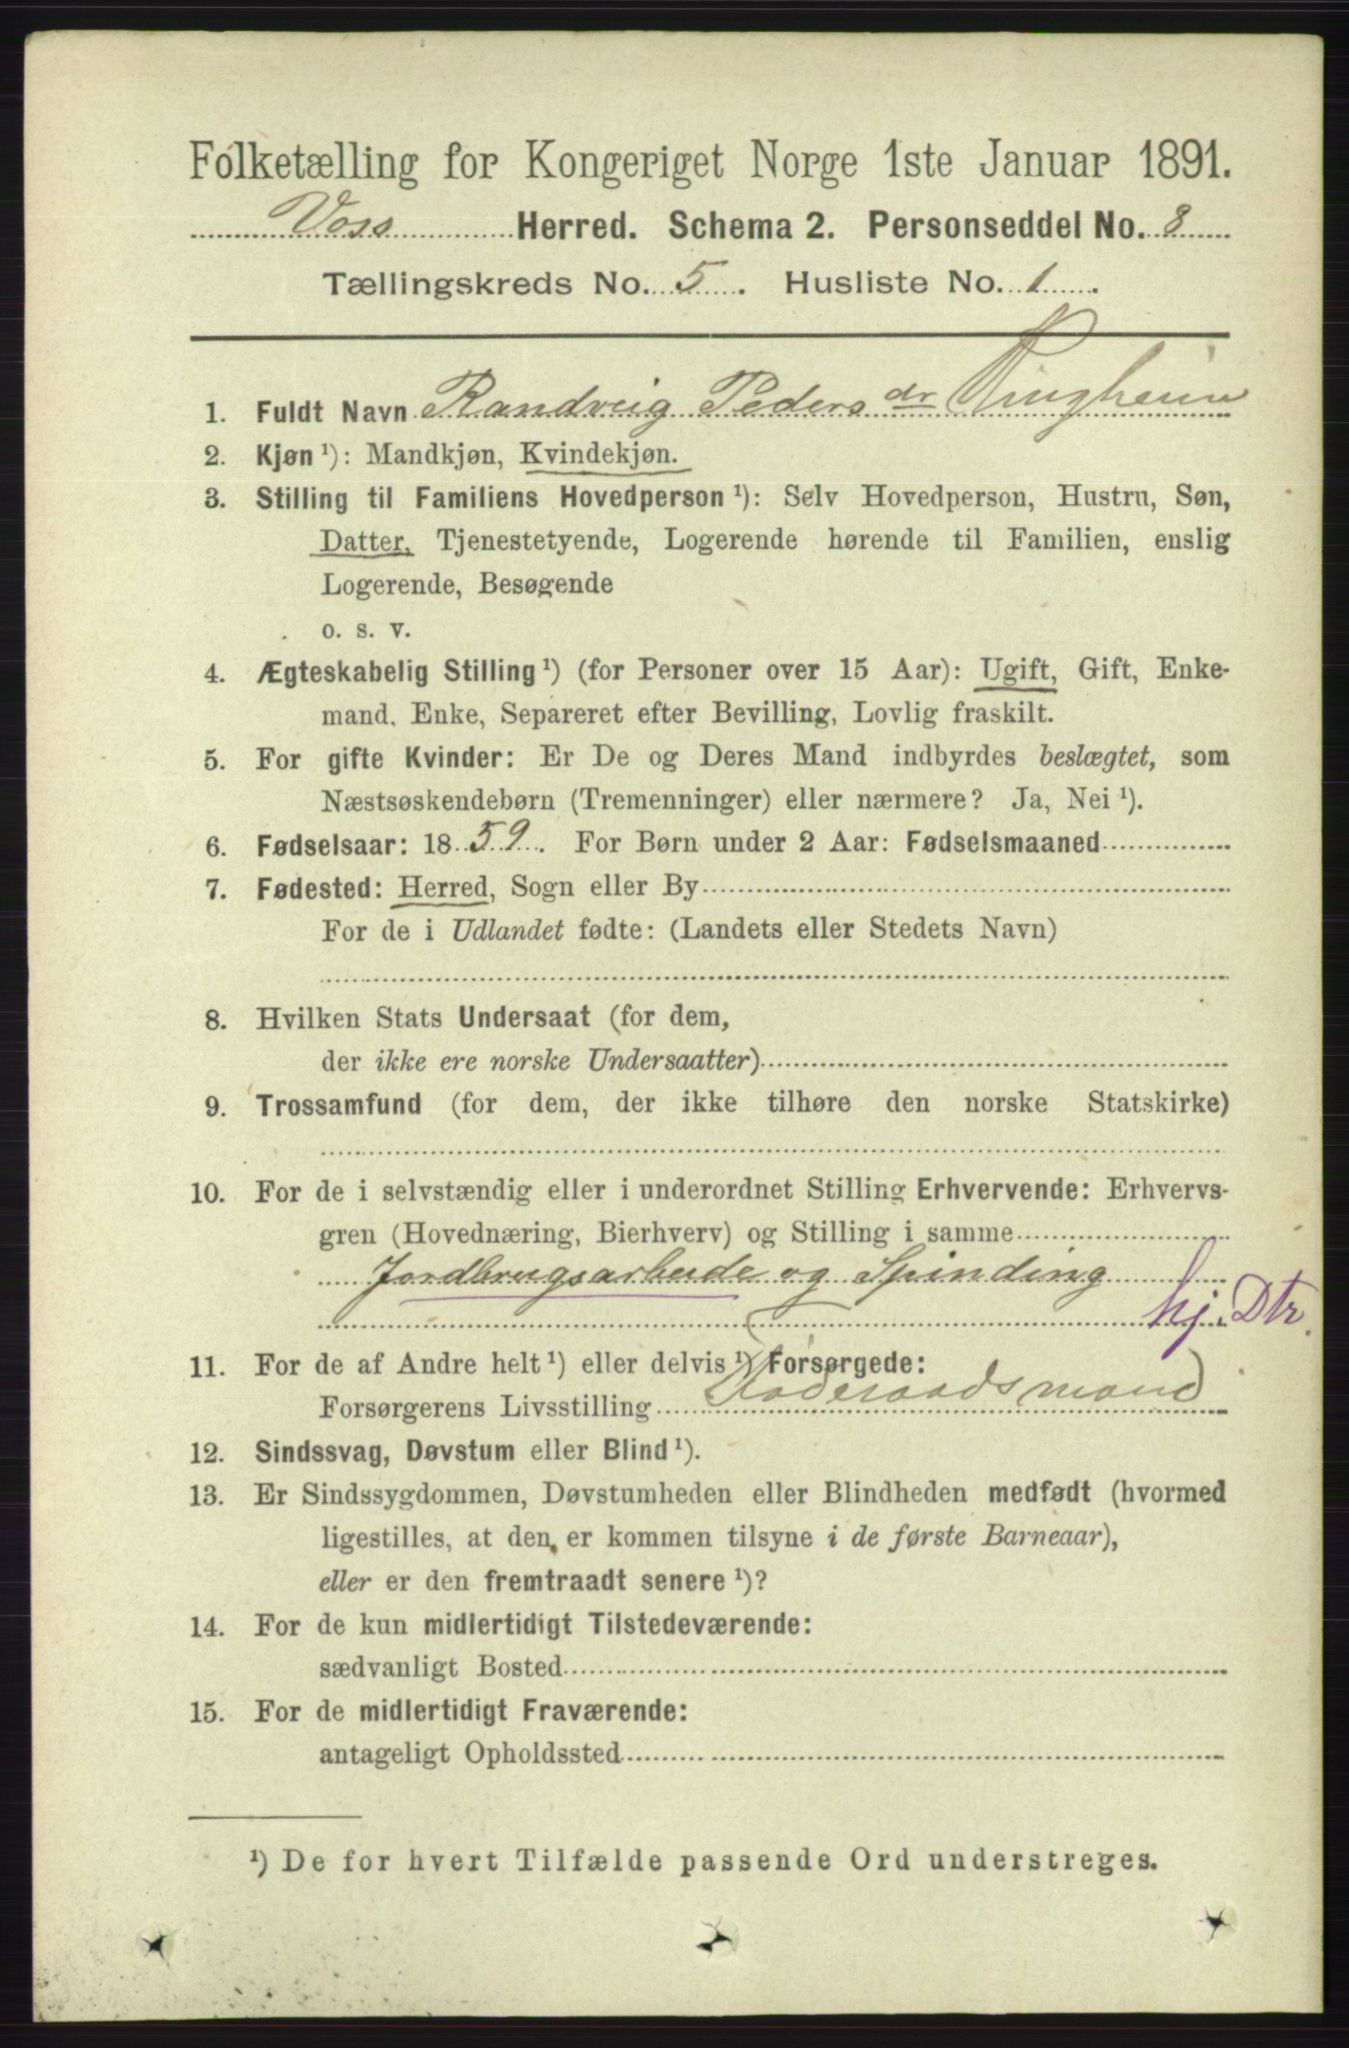 Folketælling for Kongeriget Norge 1ste Januar 1891.
Voss Herred. Schema 2. Personseddel No. 8
Tællingskreds No. 5. Husliste No. 1.
1. Fuldt Navn Randveig Peders dr Ringheim
2. Kjøn ¹): Mandkjøn, Kvindekjøn.
3. Stilling til Familiens Hovedperson ¹): Selv Hovedperson, Hustru, Søn,
Datter, Tjenestetyende, Logerende hørende til Familien, enslig
Logerende, Besøgende
o. s. v.
4. Ægteskabelig Stilling ¹) (for Personer over 15 Aar): Ugift, Gift, Enke-
mand, Enke, Separeret efter Bevilling, Lovlig fraskilt.
5. For gifte Kvinder: Er De og Deres Mand indbyrdes beslægtet, som
Næstsøskendebørn (Tremenninger) eller nærmere? Ja, Nei ¹).
6. Fødselsaar: 1859. For Børn under 2 Aar: Fødselsmaaned
7. Fødested: Herred, Sogn eller By
For de i Udlandet fødte: (Landets eller Stedets Navn)
8. Hvilken Stats Undersaat (for dem,
der ikke ere norske Undersaatter)
9. Trossamfund (for dem, der ikke tilhøre den norske Statskirke)
10. For de i selvstændig eller i underordnet Stilling Erhvervende: Erhvervs-
gren (Hovednæring, Bierhverv) og Stilling i samme
Jordbrugsarbeide og Spinding
hj. Dtr.
11. For de af Andre helt ¹) eller delvis ¹) Forsørgede:
Forsørgerens Livsstilling Föderaadsmand
12. Sindssvag, Døvstum eller Blind ¹).
13. Er Sindssygdommen, Døvstumheden eller Blindheden medfødt (hvormed
ligestilles, at den er kommen tilsyne i de første Barneaar),
eller er den fremtraadt senere ¹)?
14. For de kun midlertidigt Tilstedeværende:
sædvanligt Bosted
15. For de midlertidigt Fraværende:
antageligt Opholdssted
¹) De for hvert Tilfælde passende Ord understreges.